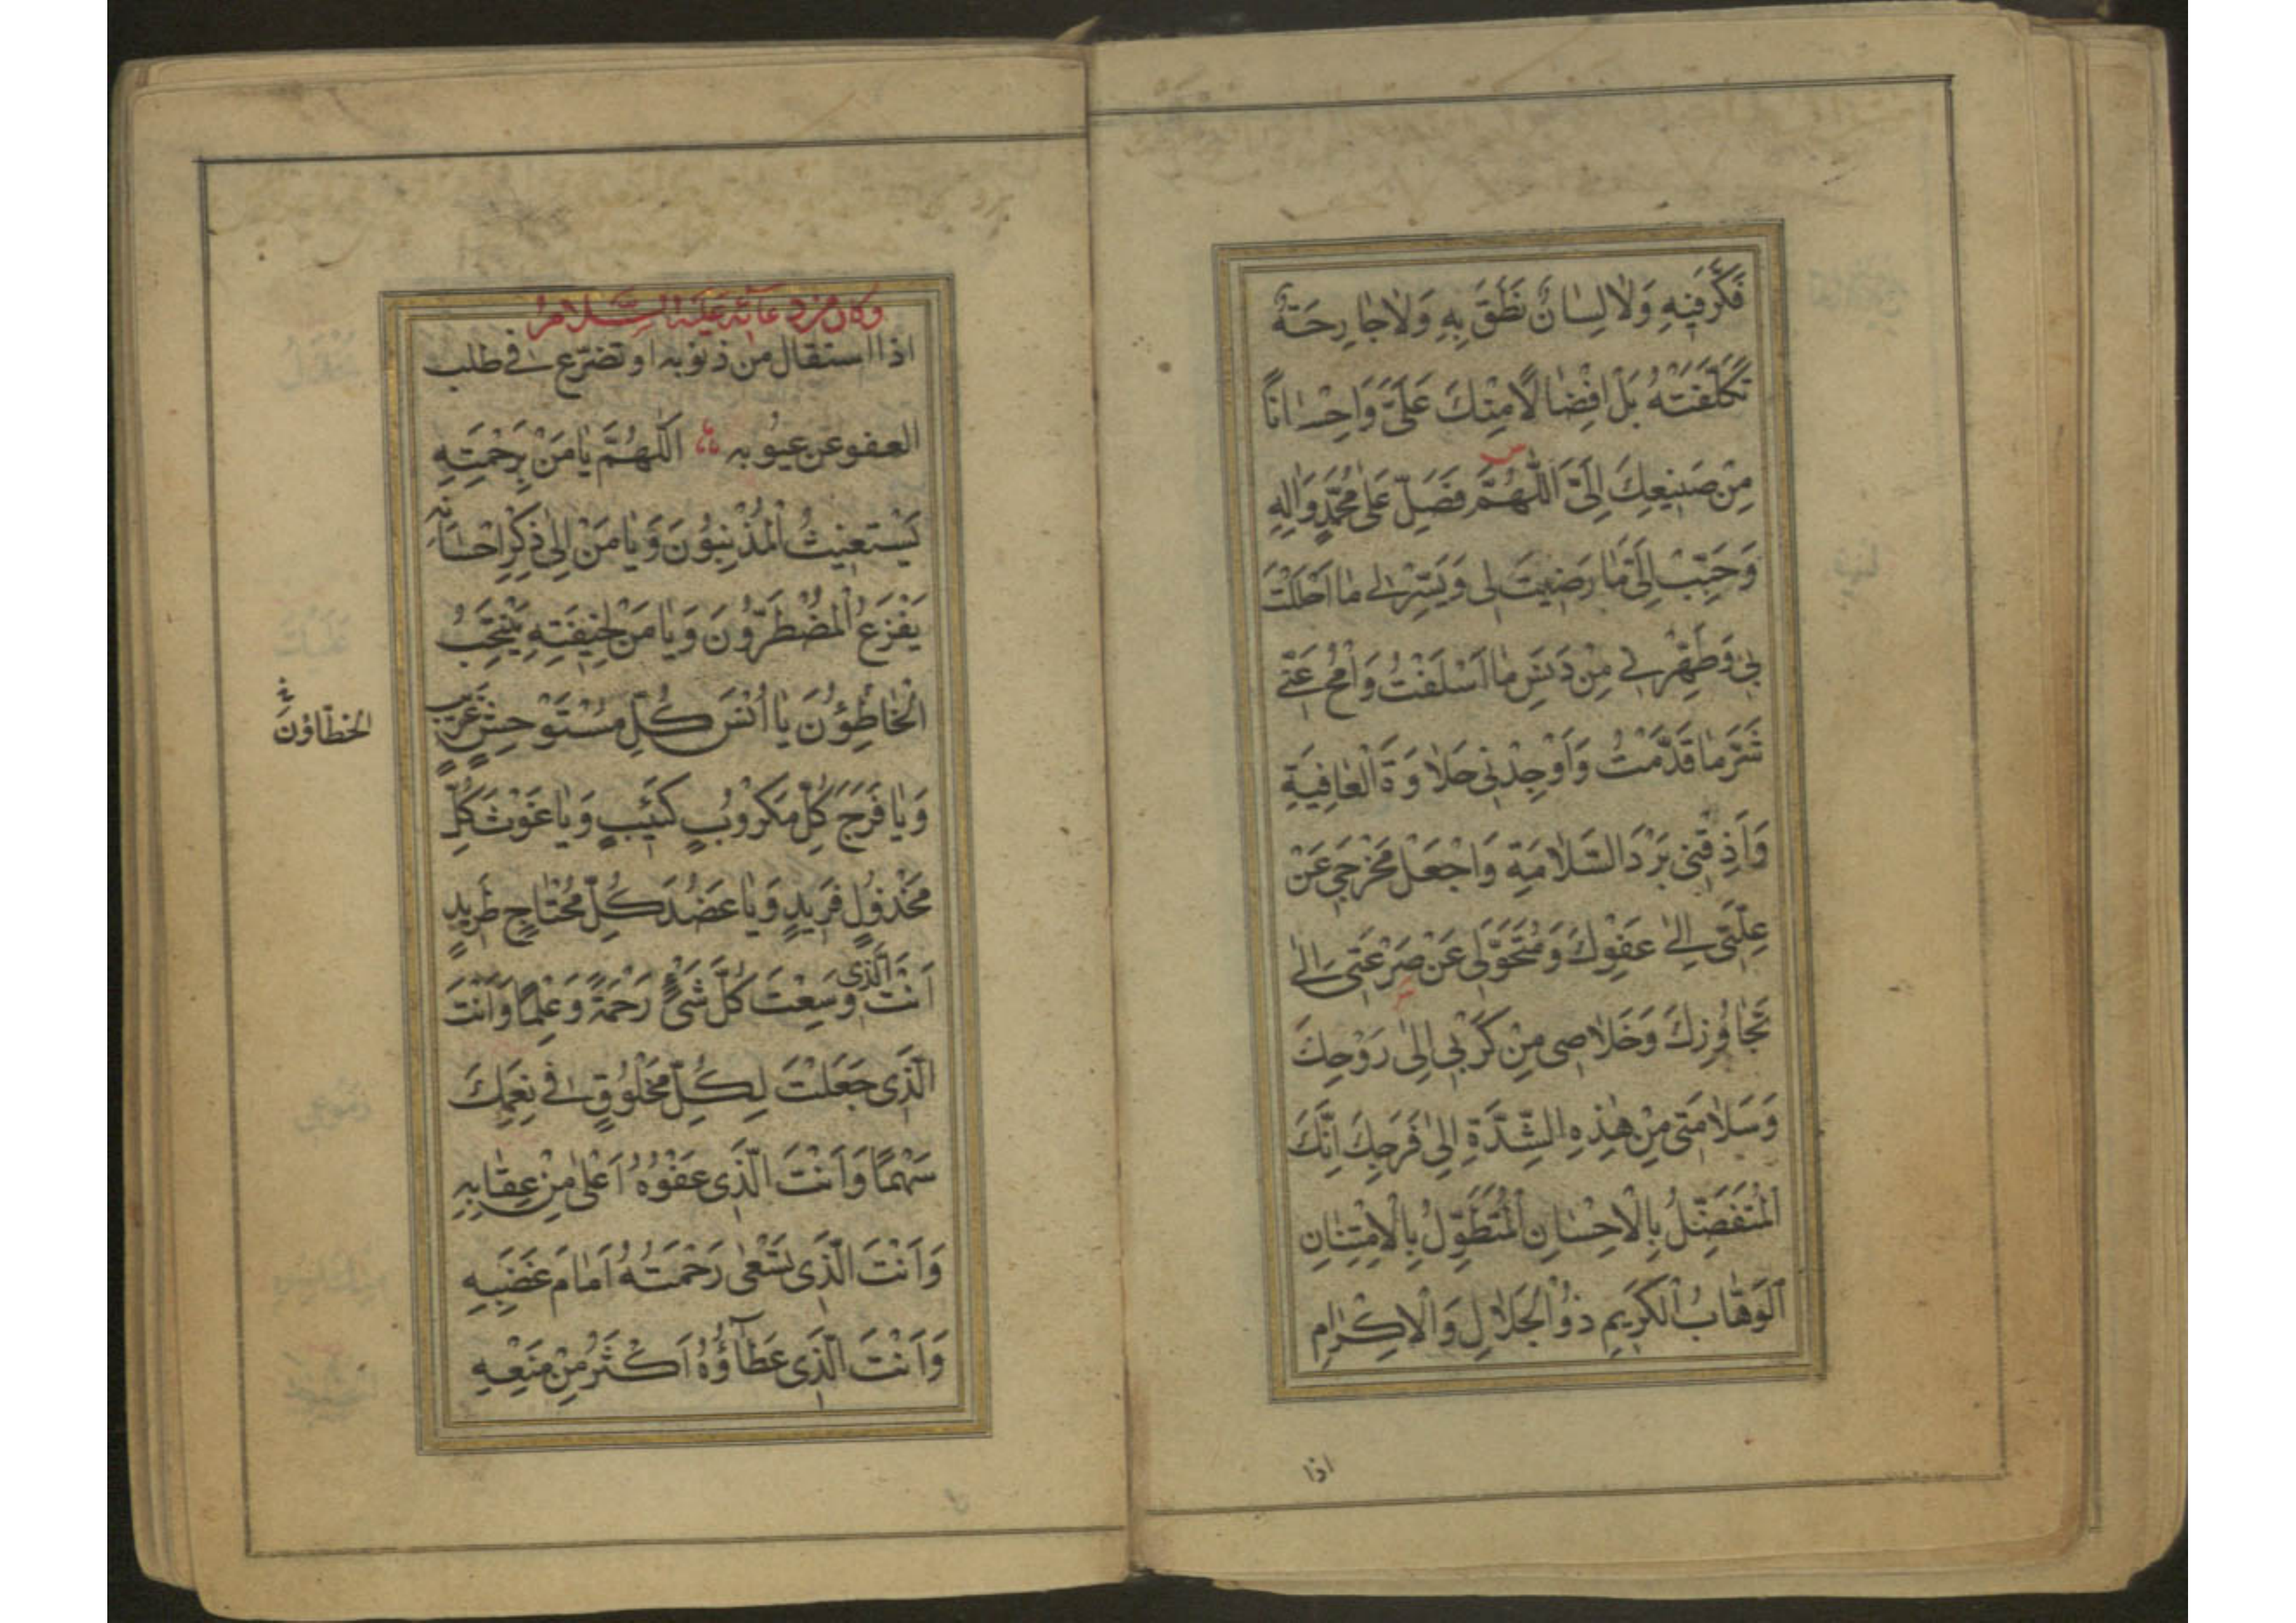 فَكَّرَ فِيهِ وَلَا لِسَانٌ نَطَقَ بِهِ وَلَا جَارِحَةٌ
تَكَلَّفَتْهُ بَلْ اِفْضَالًا مِنْكَ عَلَيَّ وَاِحْسَانًا
مِنْ صَنِيعِكَ اِلَيَّ اَللّٰهُمَّ فَصَلِّ عَلٰى مُحَمَّدٍ وَاٰلِهِ
وَحَبِّبْ اِلَيَّ مَا رَضِيتَ لِى وَيَسِّرْ لِى مَا اَحْلَلْتَ
بِى وَطَهِّرْنِى مِنْ دَنَسِ مَا اَسْلَفْتُ وَامْحُ عَنِّى
شَرَّ مَا قَدَّمْتُ وَاَوْجِدْنِى حَلَاوَةَ الْعَافِيَةِ
وَاَذِقْنِى بَرْدَ السَّلَامَةِ وَاجْعَلْ مَخْرَجِى عَنْ
عِلَّتِى اِلٰى عَفْوِكَ وَمُتَحَوَّلِى عَنْ صَرْعَتِى اِلٰى
تَجَاوُزِكَ وَخَلَاصِى مِنْ كَرْبِى اِلٰى رَوْحِكَ
وَسَلَامَتِى مِنْ هٰذِهِ الشِّدَّةِ اِلٰى فَرَجِكَ اِنَّكَ
الْمُتَفَضِّلُ بِالْاِحْسَانِ الْمُتَطَوِّلُ بِالْاِمْتِنَانِ
اَلْوَهَّابُ الْكَرِيمِ ذُو الْجَلَالِ وَالْاِكْرَامِ
اذا
وكان من دعائه عليه السلام
اذا استقال من ذنوبه او تضرّع فى طلب
العفو عن عيوبه اَللّٰهُمَّ يَا مَنْ بِرَحْمَتِهِ
يَسْتَغِيثُ الْمُذْنِبُونَ وَيَا مَنْ اِلٰى ذِكْرِ اِحْسَانِهِ
يَفْزَعُ الْمُضْطَرُّونَ وَيَا مَنْ لِخِيفَتِهِ يَنْتَحِبُ
الْخَاطِؤُنَ يَا اُنْسَ كُلِّ مُسْتَوْحِشٍ غَرِيبٍ
الخطّاؤن
وَيَا فَرَجَ كُلِّ مَكْرُوبٍ كَئِيبٍ وَيَا غَوْثَ كُلِّ
مَخْذُولٍ فَرِيدٍ وَيَا عَضُدَ كُلِّ مُحْتَاجٍ طَرِيدٍ
اَنْتَ الَّذِى وَسِعْتَ كُلَّ شَىْءٍ رَحْمَةً وَعِلْمًا وَاَنْتَ
الَّذِى جَعَلْتَ لِكُلِّ مَخْلُوقٍ فِى نِعَمِكَ
سَهْمًا وَاَنْتَ الَّذِى عَفْوُهُ اَعْلٰى مِنْ عِقَابِهِ
وَاَنْتَ الَّذِى تَسْعٰى رَحْمَتُهُ اَمَامَ غَضَبِهِ
وَاَنْتَ الَّذِى عَطَآؤُهُ اَكْثَرُ مِنْ مَنْعِهِ